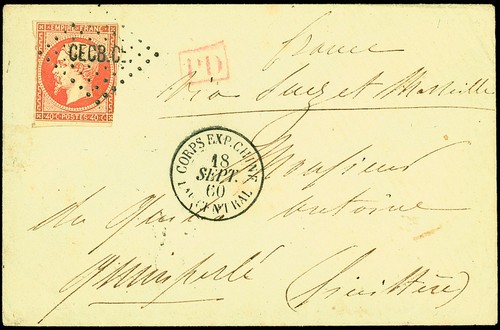 EMPIRE FRANC.
40·C·POSTES·40·C
CECB.C
PD
france
Via Suez et Marseille
CORPS EXP. CHINE
18
SEPT.
60
CENTRAL
Monsieur
Antoine
du
Quimperlé
(Finistère)